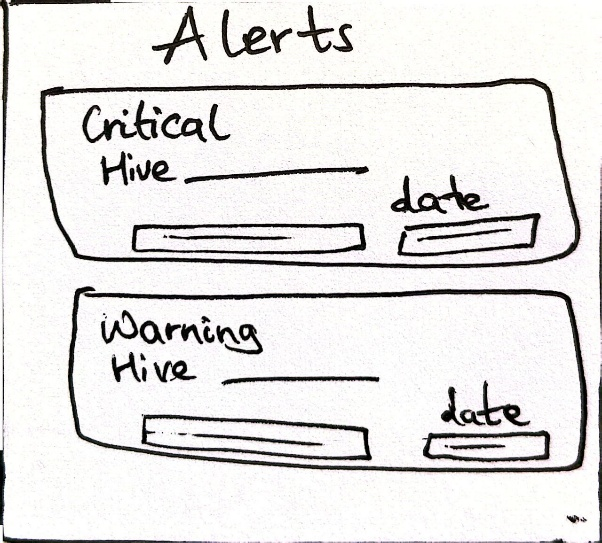 Alerts
Critical
Hive
date
Warning
Hive
date